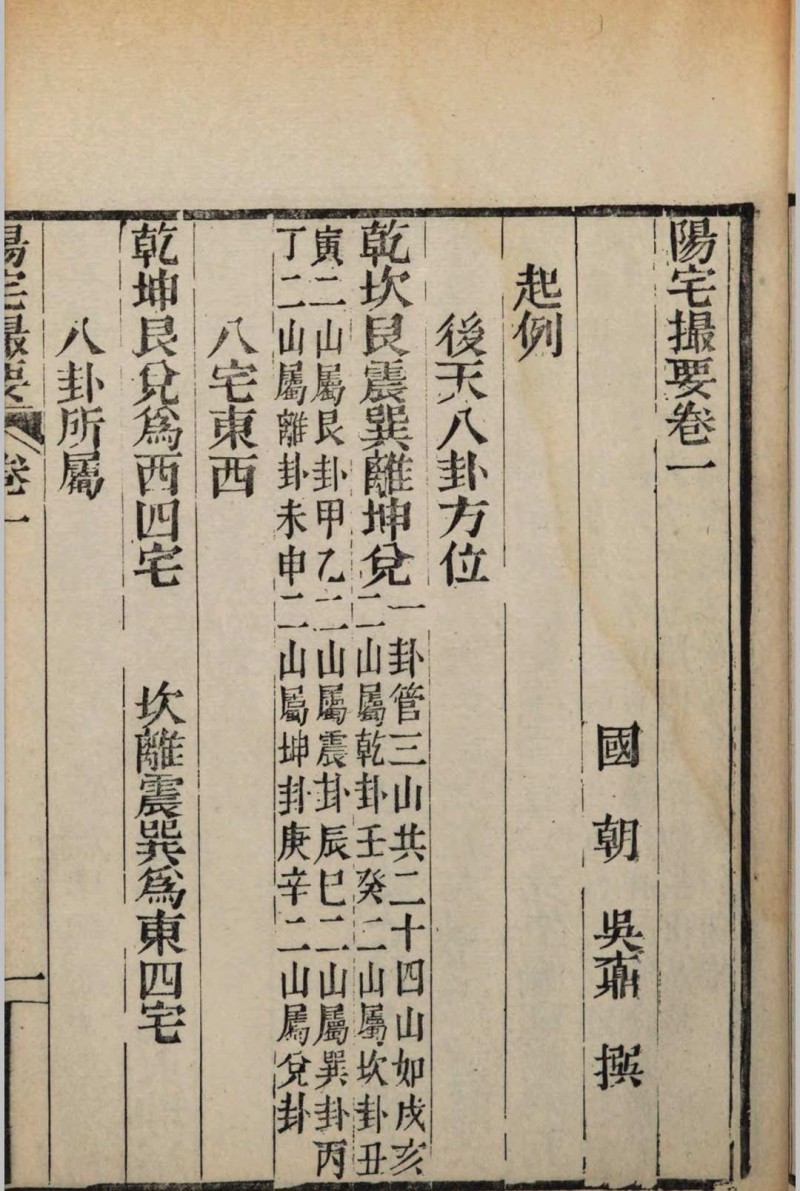 陽宅撮要卷一
國朝 吳鼒 撰
起例
後天八卦方位
乾坎艮震巽離坤兌
一卦管三山共二十四山如戌亥
二山屬乾卦壬癸二山屬坎卦丑
寅二山屬艮卦甲乙二山屬震卦辰巳二山屬巽卦丙
丁二山屬離卦未申二山屬坤卦庚辛二山屬兌卦
八宅東西
乾坤艮兌爲西四宅 坎離震巽爲東四宅
八卦所屬
陽宅撮要 卷一 一